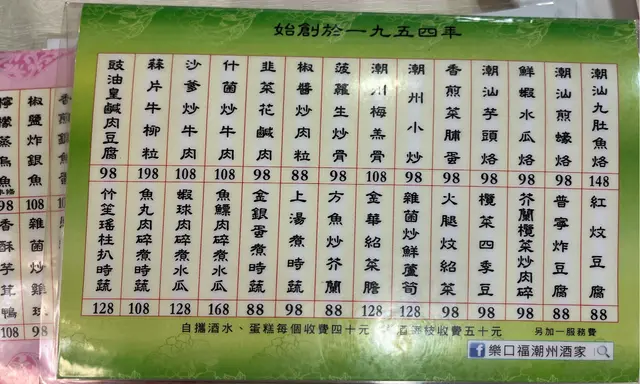 始創於一九五四年
潮汕九肚魚烙 148
潮汕煎蠔烙 98
鮮蝦水瓜烙 98
潮汕芋頭烙 98
香煎菜脯蛋 98
潮州小炒 98
潮州梅羔骨 108
菠蘿生炒骨 98
椒醬炒肉粒 88
韮菜花鹹肉 98
什菌炒牛肉 108
沙爹炒牛肉 108
蒜片牛柳粒 198
豉油皇鹹肉豆腐 98
紅炆豆腐 88
普寧炸豆腐 88
芥蘭欖菜炒肉碎 98
欖菜四季豆 88
火腿炆紹菜 98
雜菌炒鮮蘆筍 128
金華紹菜膽 128
方魚炒芥蘭 88
上湯煮時蔬 98
金銀蛋煮時蔬 88
魚鰾肉碎煮水瓜 168
蝦球肉碎煮水瓜 128
魚丸肉碎煮時蔬 108
竹笙瑤柱扒時蔬 128
自攜酒水、蛋糕每個收費四十元
收費五十元
另加一服務費
樂口福潮州酒家
椒鹽炸銀魚 108
雜菌炒雞球 98
香酥芋茸鴨 108